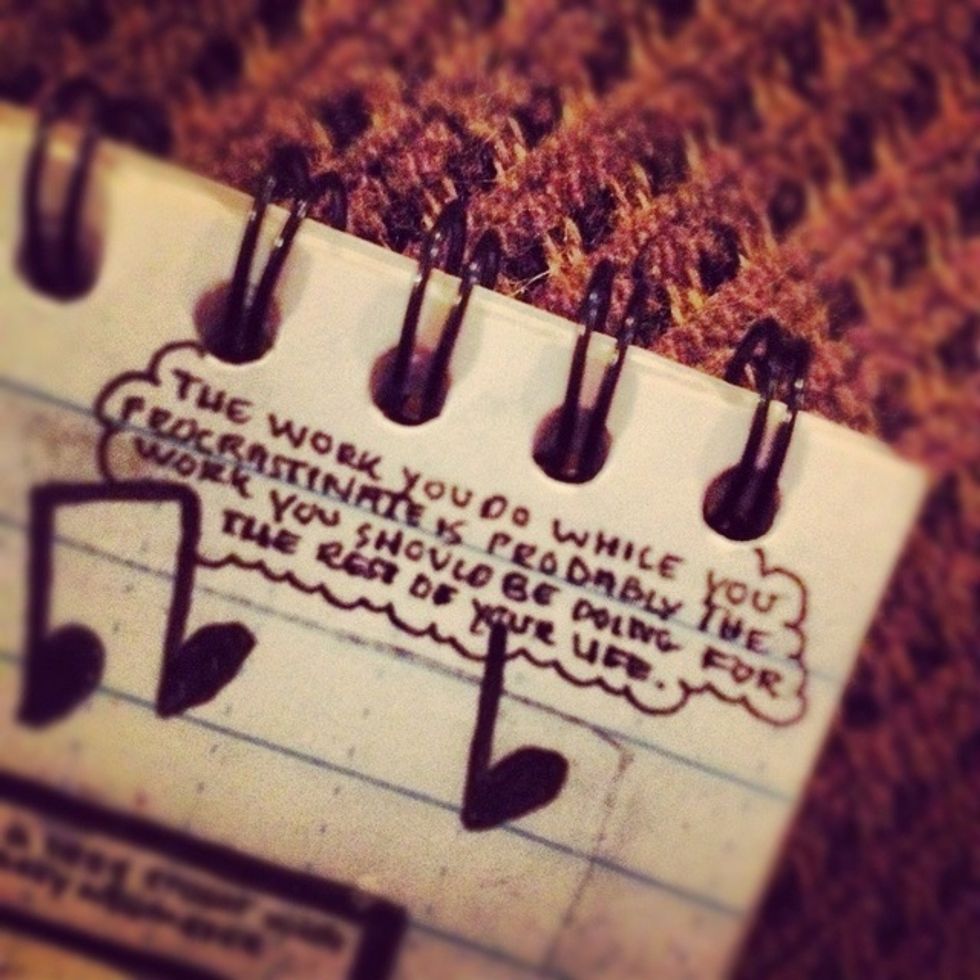 THE WORK YOU DO WHILE YOU
PROCRASTINATE IS PROBABLY THE
WORK YOU SHOULD BE DOING FOR
THE REST OF YOUR LIFE.